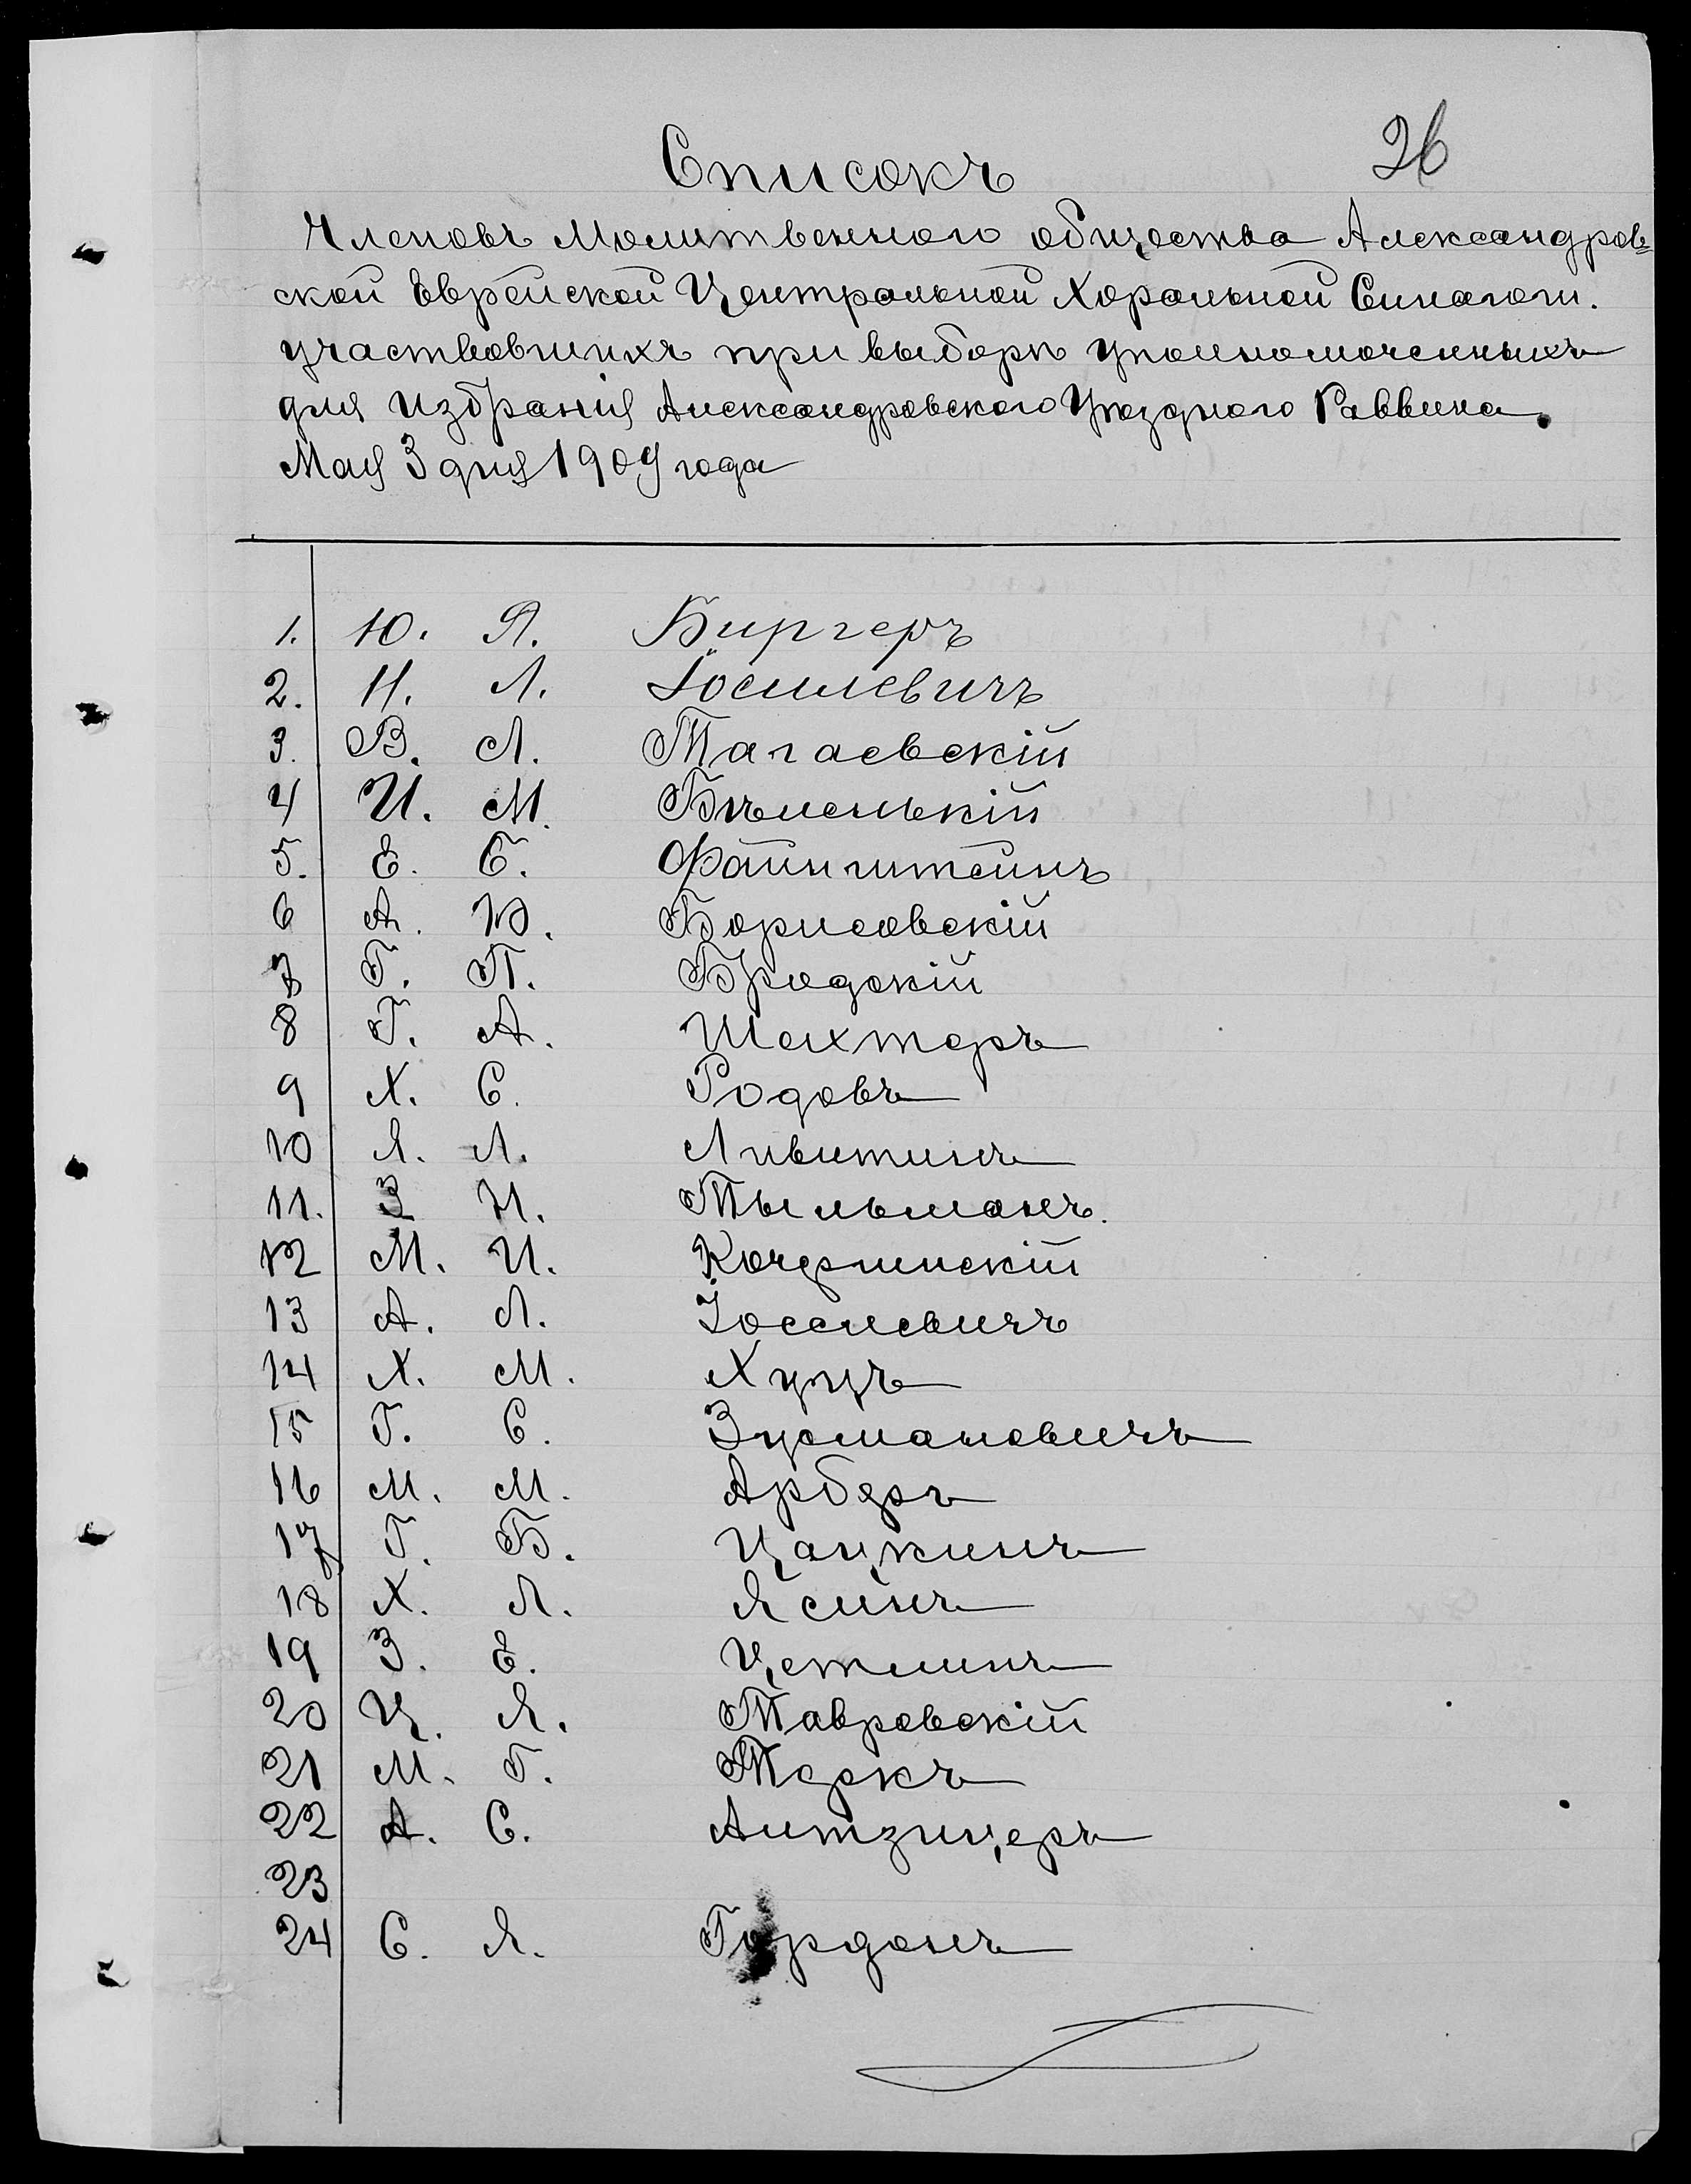 26
Списокъ
Членовъ Молитвенного общества Александров=
ской Еврейской Центральной Хоральной Синагоги.
участвовшихъ при выборѣ уполномоченныхъ
для избранія Александровского Уѣздного Раввина.
Мая 3 дня 1909 года
1. Ю. Я. Биргеръ
2. Н. Л. Іосилевичъ
3. В. Л. Тагаевскій
4 И. М. Бѣленькій
5. Е. Б. Файнштейнъ
6 А. Ю. Борисовскій
7 Г. П. Бродскій
8 Г. А. Шахтеръ
9 Х. С. Родовъ
10 Я. Л. Ливитинъ
11. З Н. Тыльманъ.
12 М. И. Кочеринскій
13 А. Л. Іосилевичъ
14 Х. М. Хуцъ
15 Г. С. Зусмановичъ
16 М. М. Арберъ
17 Г. Б. Цацкинъ
18 Х. Л. Ясинъ
19 З. Е. Цетлинъ
20 Ц. Я. Тавровскій
21 М. Г. Теркъ
22 А. С. Антзицеръ
23
24 С. Я. Гордонъ